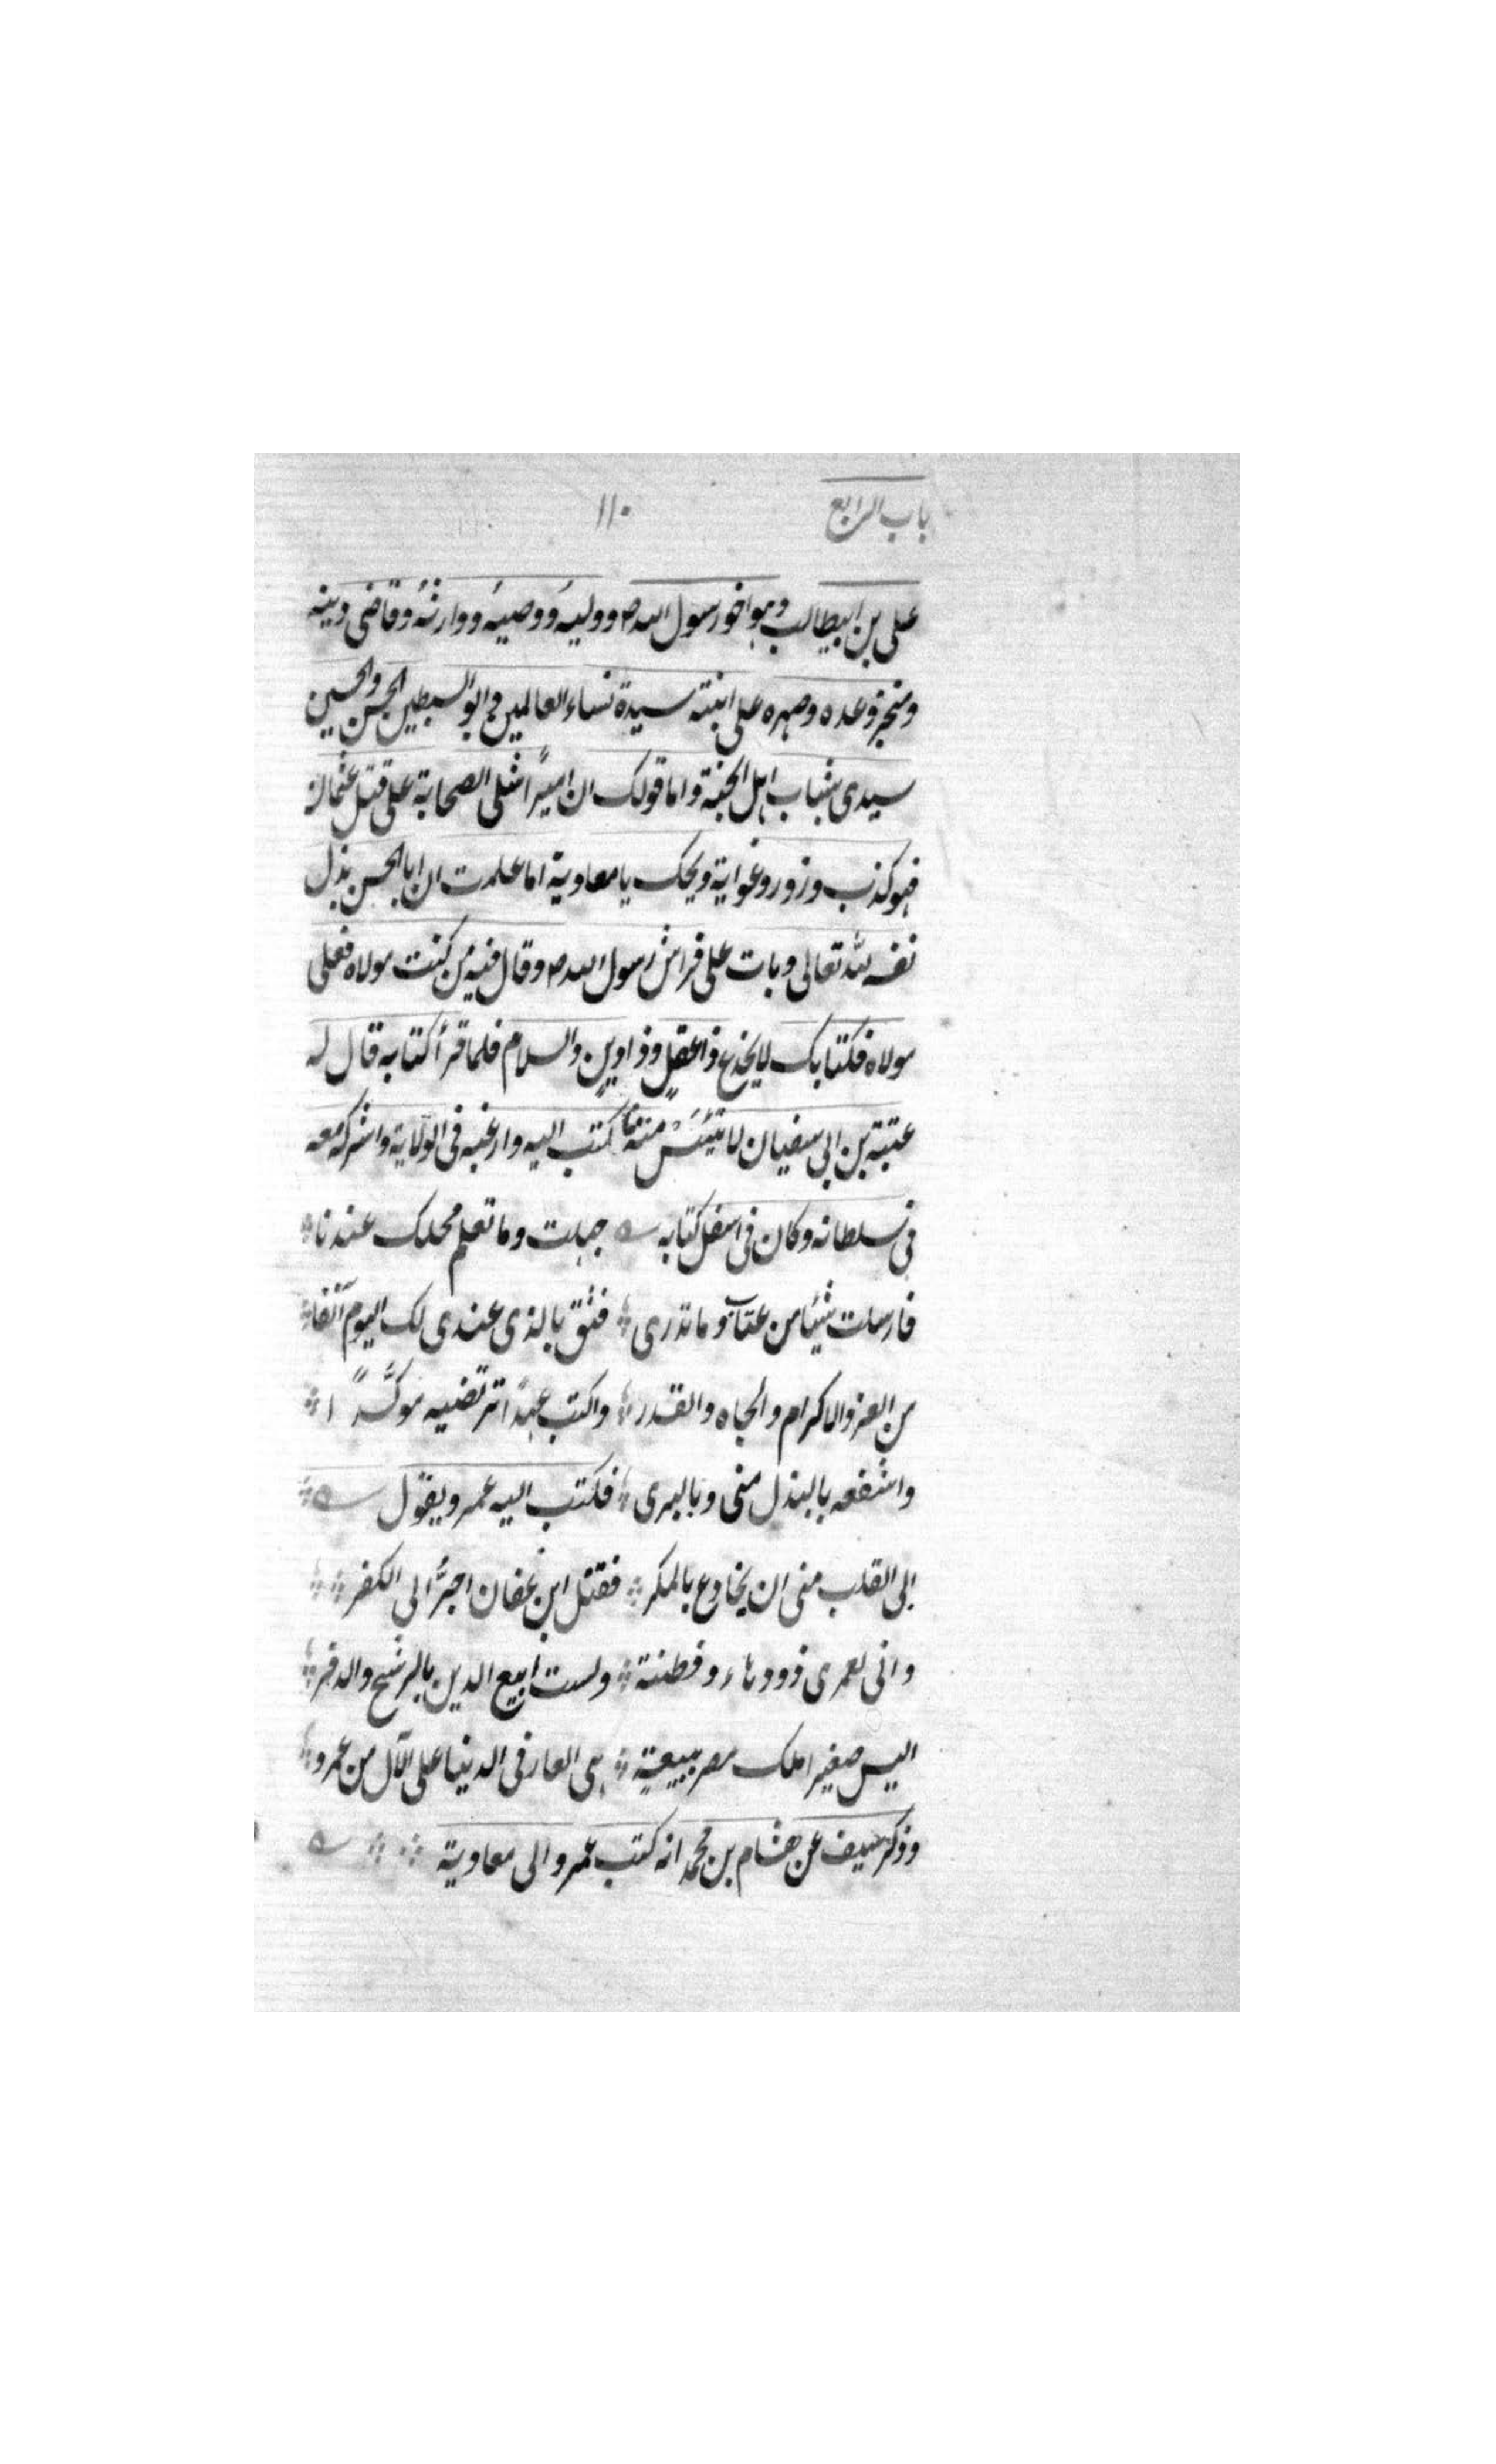 باب الرابع ١١٠
على بن ابيطالب وهو اخو رسول الله ص ووليه ووصيه ووارثه وقاضى دينه
ومنجز وعده وصهره على ابنته سيدة نساء العالمين وابو السبطين الحسن والحسين
سيدى شباب اهل الجنة واما قولك ان اميرًا اشلى الصحابة على قتل عثمان
فهو كذب وزور وغواية ويحك يا معاوية اما علمت ان ابا الحسن بذل
نفسه لله تعالى وبات على فراش رسول الله ص وقال فيه من كنت مولاه فعلى
مولاه فكتابك لا يخدع ذا عقلٍ وذا دينٍ والسلام فلما قرأ كتابه قال له
عتبة بن ابى سفيان لا تيئس منه كتب اليه وارغبه فى الولاية واشركه معه
فى سلطانه وكان فى اسفل كتابه جهلت وما تعلم محلك عندنا
فارسلت شيئا من عتاب وما تدرى فثق بالذى عندى لك اليوم آنفا
من العز والاكرام والجاه والقدر واكتب عهدًا ترتضيه موكّدًا
واشفعه بالبذل منى وبالبرى فكتب اليه عمرو يقول
ابى القلب منى ان يخادع بالمكر فقتل ابن عفان اجرّ الى الكفر
وانى لعمرى ذو دهاء وفطنة ولست ابيع الدين بالرشح والدفر
اليس صغيرا ملك مصر ببيعةٍ هى العار فى الدنيا على الآل من عمرو
وذكر سيف عن هشام بن محمد انه كتب عمرو الى معاوية